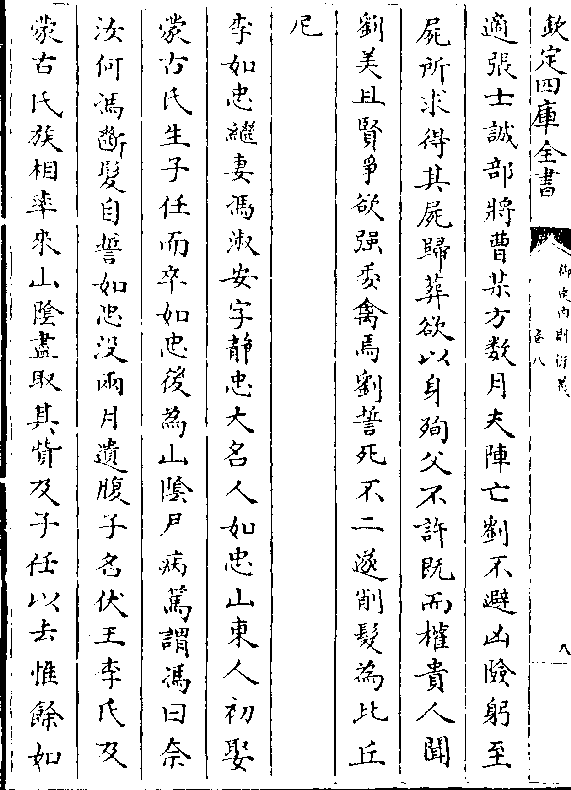 欽定四庫全書
御定內則衍義
卷八
八
適張士誠部將曹某方数月夫陣亡劉不避凶險躬至
屍所求得其屍歸葬欲以身殉父不許既而權貴人聞
劉美且賢爭欲强委禽焉劉誓死不二遂削髮為比丘
尼
李如忠繼妻馮淑安字靜忠大名人如忠山東人初娶
蒙古氏生子任而卒如忠後為山陰尹病篤謂馮曰奈
汝何馮斷髮自誓如忠没兩月遺腹子名伏王李氏及
蒙古氏族相率來山陰盡取其貲及子任以去惟餘如